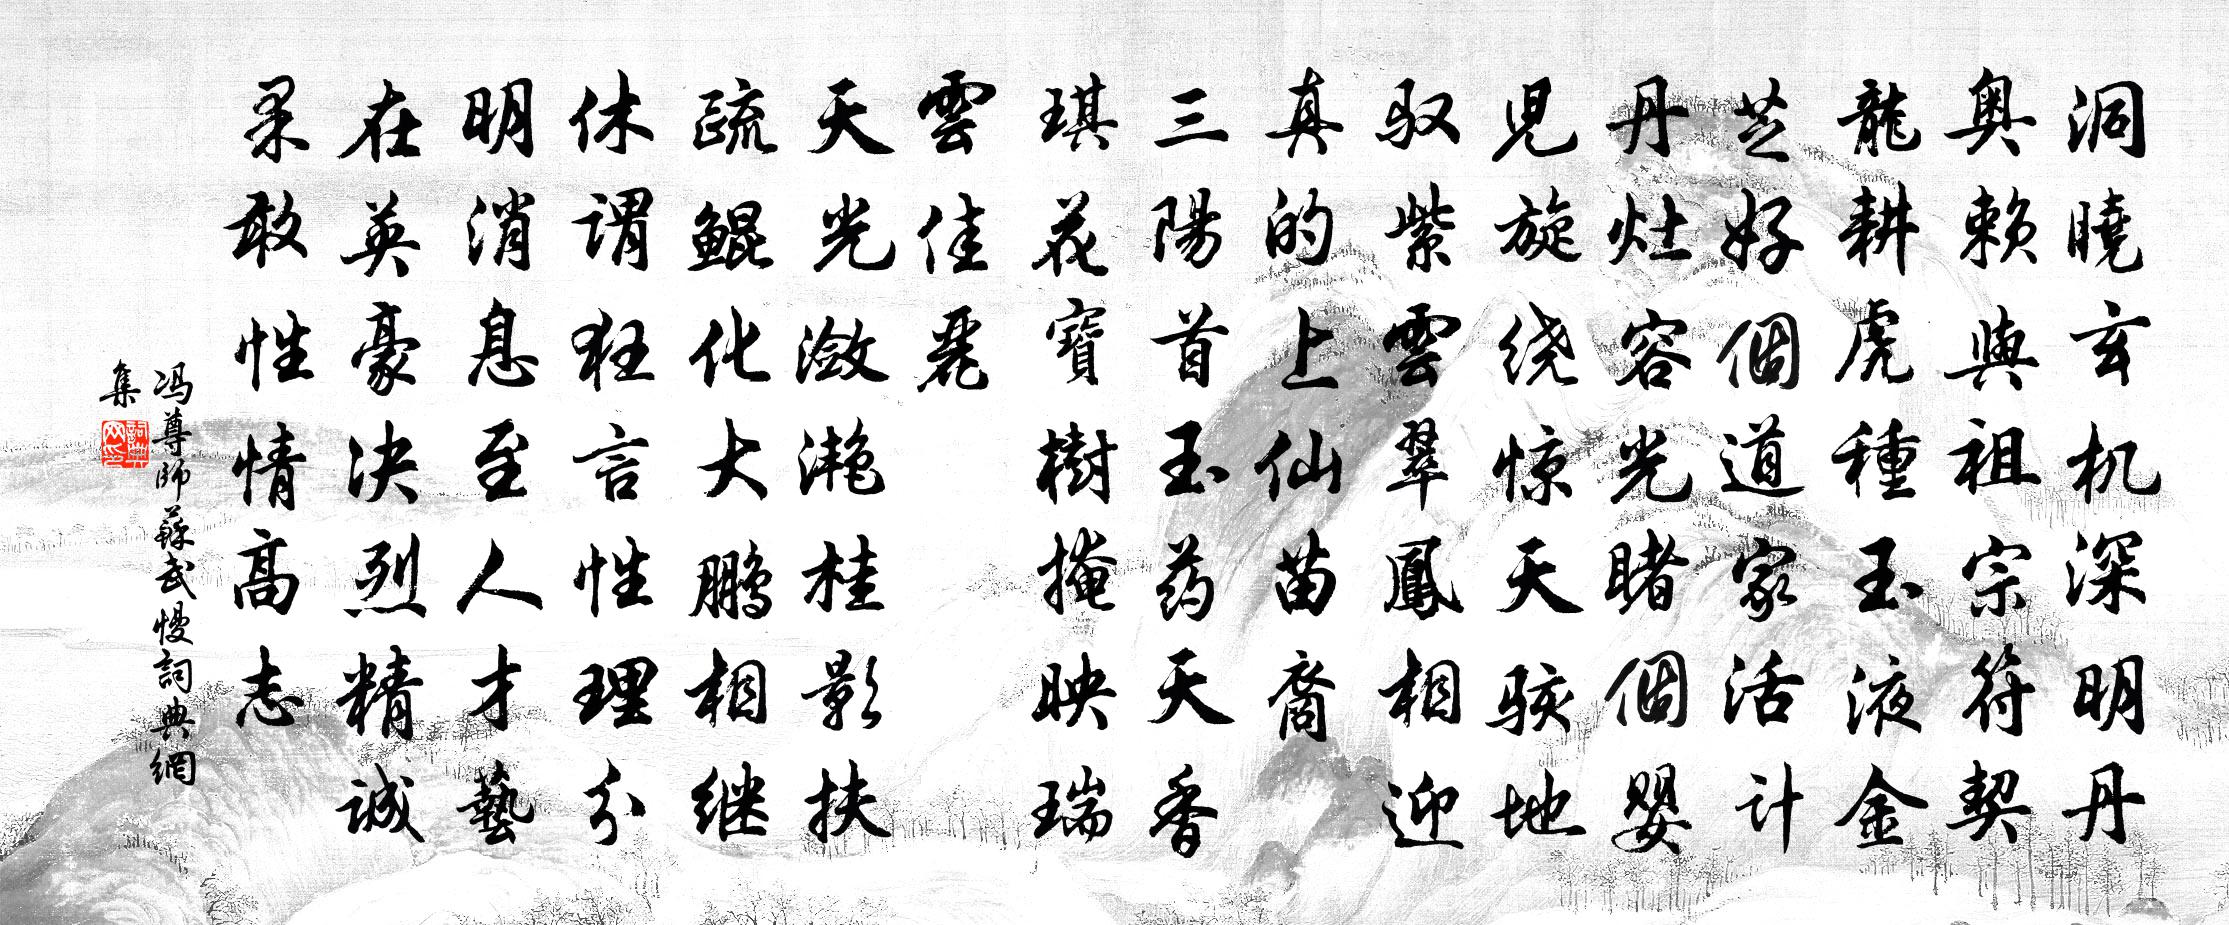 洞曉玄机深明丹
奥赖與祖宗符契
龍耕虎種玉液金
芝好個道家活计
丹灶容光睹個婴
児旋绕惊天骇地
驭紫雲翠鳳相迎
真的上仙苗裔
三陽首玉药天香
琪花寶樹掩映瑞
雲佳麗
天光潋滟桂影扶
疏鲲化大鹏相继
休谓狂言性理分
明消息至人才藝
在英豪决烈精诚
果敢性情高志
冯尊師蘇武慢詞典網
集